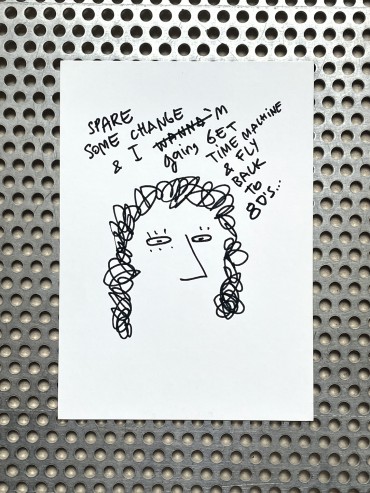 SPARE
SOME CHANGE
& I WANNA 'M
going GET
TIME MACHINE
& FLY
BACK
TO
80'S...